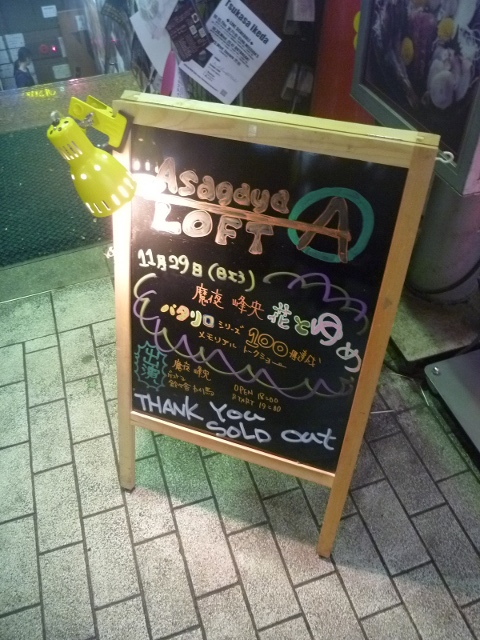 Tsukasa Ikeda
Asagaya
LOFT A
11月29日(日)
魔夜 峰央 花とゆめ
パタリロ シリーズ 100
メモリアル トークショー
出演
魔夜 峰央
OPEN 18:00
START 19:00
THANK YOU
SOLD OUT